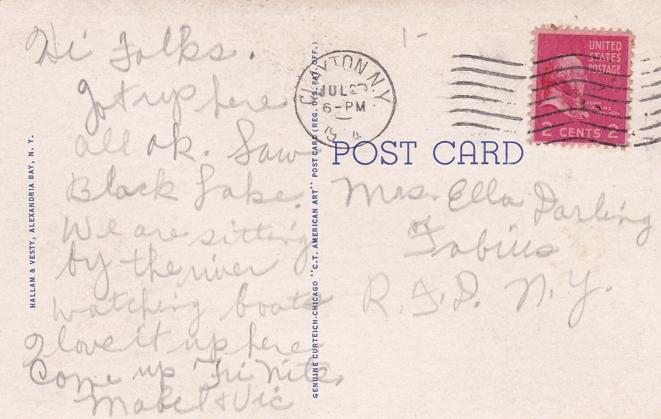 Hi Folks.
Got up here
all ok. Saw
Black Lake.
We are sitting
by the river
watching boats
I love it up here
Come up Fri Nite.
Mabel & Vic
HALLAM & VESTY, ALEXANDRIA BAY, N. Y.
GENUINE CURTEICH-CHICAGO "C.T. AMERICAN ART" POST CARD (REG. U.S. PAT. OFF.)
CLAYTON N.Y.
JUL
6-PM
19
UNITED
STATES
POSTAGE
2 CENTS 2
POST CARD
Mrs. Ella Darling
Fabius
R.F.D. N.Y.